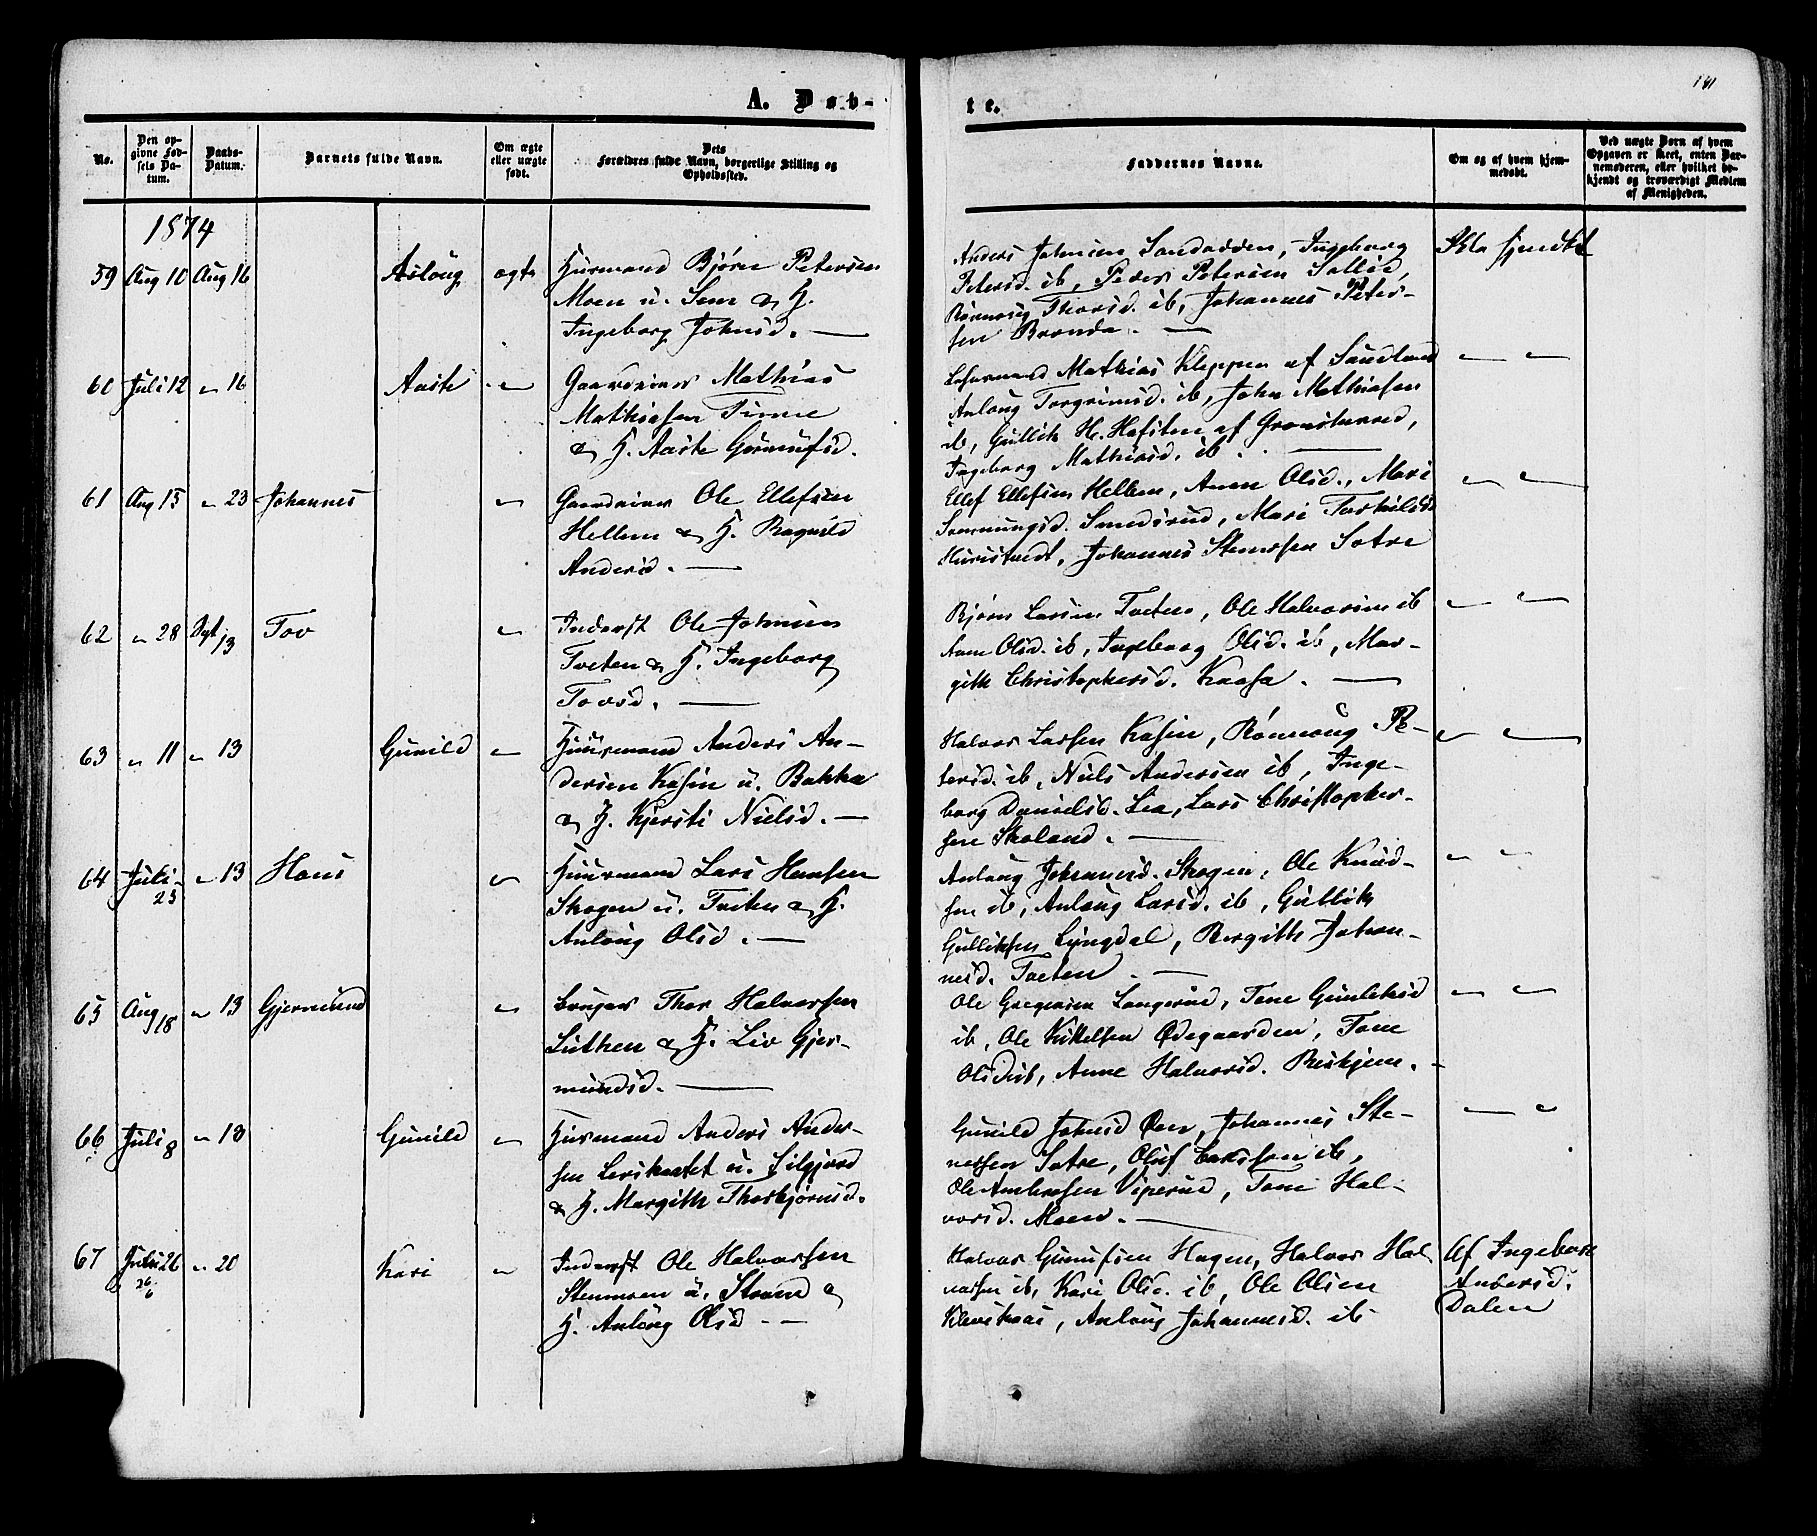 A. Døb-
te.
181
No.
Den opgivne Fødsels Datum.
Daabs-Datum.
Barnets fulde Navn.
Om ægte eller uægte født.
Dets Forældres fulde Navn, borgerlige Stilling og Opholdssted.
Faddernes Navne.
Om og af hvem hjemmedøbt.
Ved uægte Børn af hvem Opgaven er skeet, enten Barnemoderen, eller hvilket bekjendt og troværdigt Medlem af Menigheden.
1874
59 Aug 10 Aug 16 Aslaug ægte Huusmand Bjørn Petersen
Moen u. Sem & H.
Ingeborg Johnsd. —
Anders Johnsen Sandadden, Ingeborg
Petersd. ib, Peder Petersen Sollid,
Rønnaug Thorsd. ib, Johannes Peter-
sen Bronda. —
Ikke hjmdbt
60 Juli 12 " 16 Aaste " Gaardeier Mathias
Mathiasen Tinne
& H. Aaste Gunnufsd.
Mathias Kleppen af Sandland
Aslaug Torgrimsd. ib, John Mathiasen
ib, Gullik H. Hafsten af Gransherred,
Ingeborg Mathisd. ib. —
" "
61 Aug 15 " 23 Johannes " Gaardeier Ole Ellefsen
Hellem & H. Ragnild
Andersd. —
Ellef Ellefsen Hellem, Anne Olsd., Mari
Sandsrud, Mari Torkilsd.
Johannes Stenersen Sotre
" "
62 " 28 Sept 13 Tov " Inderst Ole Johnsen
Tveten & H. Ingeborg
Tovsd. —
Bjørn Larsen Tveten, Ole Halvorsen ib
Anne Olsd. ib, Ingeborg Olsd. ib, Mar-
gith Christophersd. Kaasa. —
" "
63 " 11 " 13 Gunild " Huusmand Anders An-
dersen Kasin u. Bakka
& H. Kjersti Nielsd. —
Halvor Larsen Kasin, Rønnaug Pe-
tersd. ib, Niels Andersen ib, Inge-
borg Danielsd. Lia, Lars Christopher-
sen Skoland. —
" "
64 Juli 25 " 13 Hans " Huusmand Lars Hansen
Skogen u. Tveten & H.
Anlaug Olsd. —
Anlaug Johannesd. Skogen, Ole Knud-
sen ib, Anlaug Larsd. ib, Gullik
Gulliksen Lyngdal, Birgitte Johan-
nesd. Tveten —
" "
65 Aug 18 " 13 Gjermund " Bruger Thor Halvorsen
Luthen & H. Liv Gjer-
mundsd. —
Ole Gregersen Langerud, Tone Gunleiksd
ib, Ole Kittelsen Ødegaarden, Tone
Olsd ib, Anne Halvorsd. Biskjem. -
" "
66 Juli 8 " 13 Gunild " Husmand Anders Ander-
sen u.
& H. Margith Thorbjørnsd.
Gunild Johnsd Øen, Johannes Ste-
nersen Sotre, Oluf ib,
Ole Ambrosen Viperud, Tone Hal-
vorsd. Moen. —
" "
67 Juli 26 " 20 Kari " Inderst Ole Halvorsen
26
6
Stenmoen u. Strand &
H. Anlaug Olsd. —
Halvor Gunnufsen Hagen, Halvor Hal
vorsen ib, Kari Olsd. ib, Ole Olsen
Anlaug Johannesd. ib
Af Ingeborg
Andersd.
Dalen